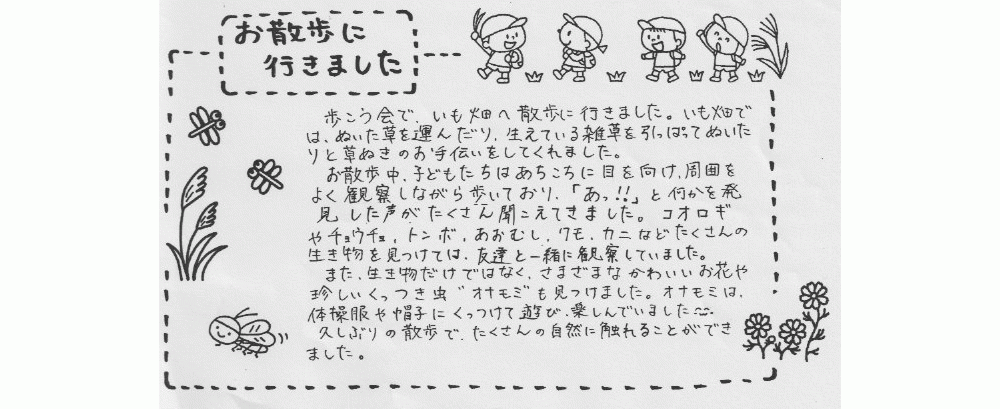 お散歩に
行きました
歩こう会で、いも畑へ散歩に行きました。いも畑で
は、ぬいた草を運んだり、生えている雑草を引っぱってぬいた
りと草ぬきのお手伝いをしてくれました。
お散歩中、子どもたちはあちこちに目を向け、周囲を
よく観察しながら歩いており、「あっ!!」と何かを発
見した声がたくさん聞こえてきました。コオロギ
やチョウチョ、トンボ、あおむし、クモ、カニなどたくさんの
生き物を見つけては、友達と一緒に観察していました。
また、生き物だけではなく、さまざまなかわいいお花や
珍しいくっつき虫〝オナモミ〟も見つけました。オナモミは、
体操服や帽子にくっつけて遊び、楽しんでいました〜
久しぶりの散歩で、たくさんの自然に触れることができ
ました。